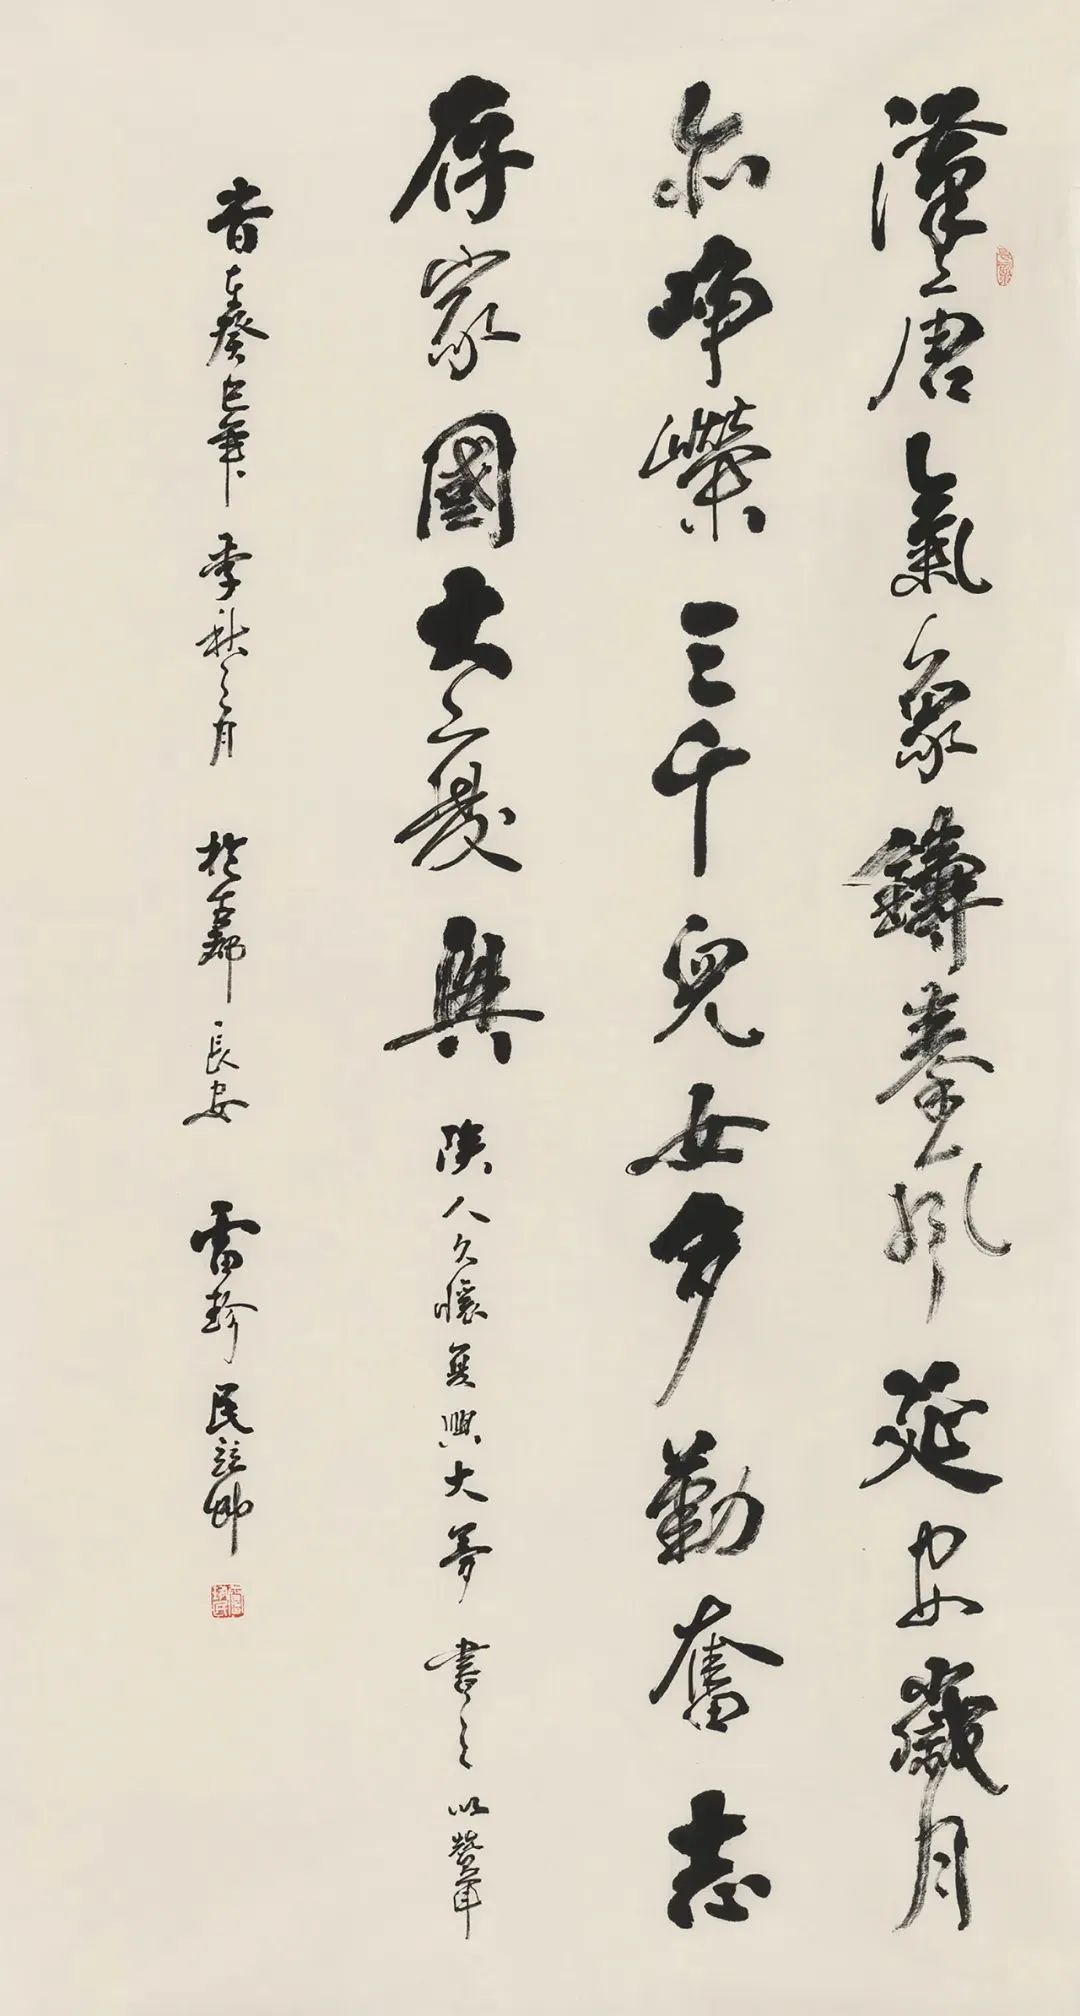 漢唐氣象鑄秦風延安歲月
亦崢嶸三千兒女多勤奮志
存家國大廈興 陝人久懷复興大夢 書之以贊
時在癸巳年季秋之月 於古都長安 雷珍民